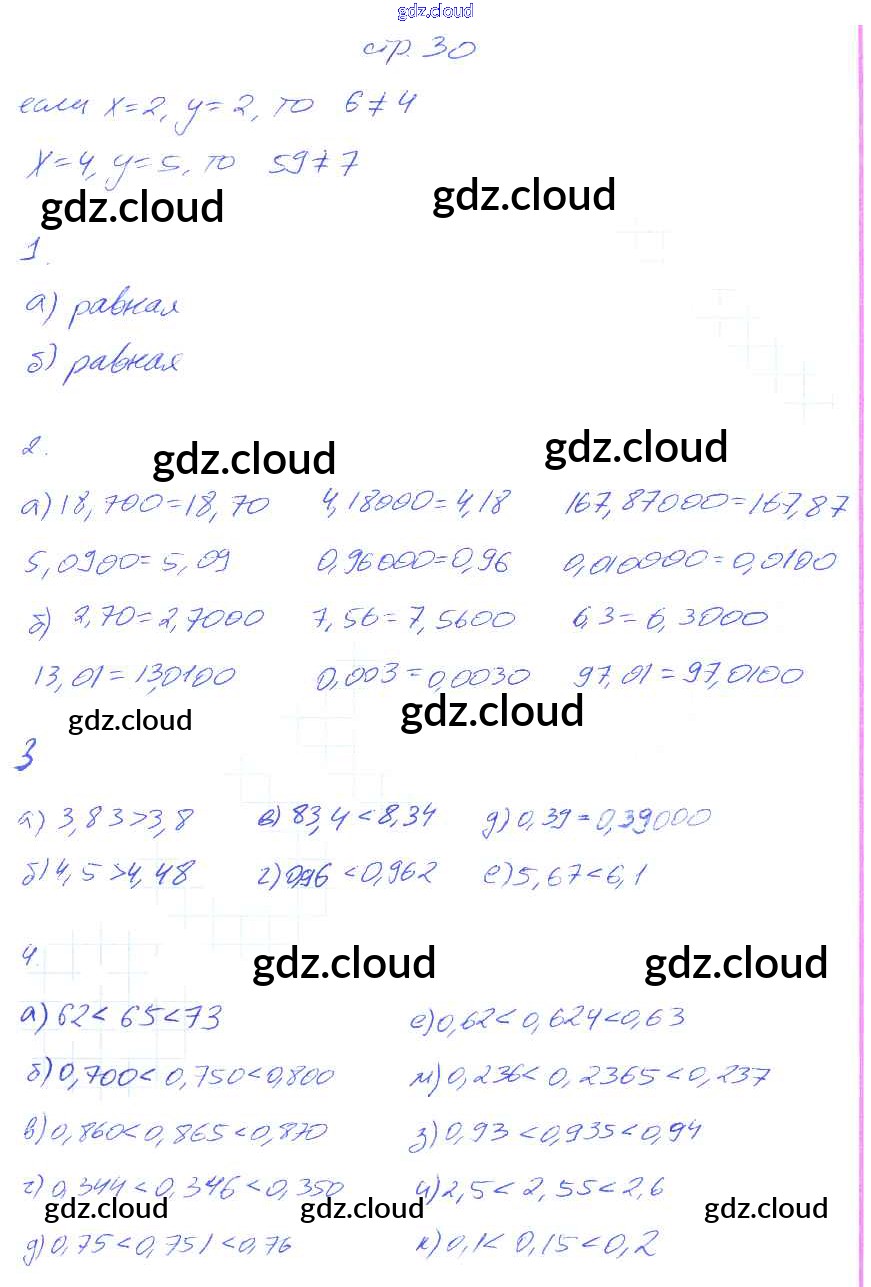 gdz.cloud
стр. 30
если x=2, y=2, то 6≠4
x=4, y=5, то 59≠7
gdz.cloud gdz.cloud
1.
а) равная
б) равная
2.
gdz.cloud gdz.cloud
а) 18,700=18,70 4,18000=4,18 167,87000=167,87
5,0900=5,09 0,96000=0,96 0,010000=0,0100
б) 2,70=2,7000 7,56=7,5600 6,3=6,3000
13,01=13,0100 0,003=0,0030 97,01=97,0100
gdz.cloud gdz.cloud
3
а) 3,83>3,8 в) 83,4<8,34 д) 0,39=0,39000
б) 4,5>4,48 г) 0,96<0,962 е) 5,67<6,1
4.
gdz.cloud gdz.cloud
а) 62<65<73 е) 0,62<0,624<0,63
б) 0,700<0,750<0,800 м) 0,236<0,2365<0,237
в) 0,860<0,865<0,870 з) 0,93<0,935<0,94
г) 0,344<0,346<0,350 и) 2,5<2,55<2,6
gdz.cloud gdz.cloud gdz.cloud
д) 0,75<0,751<0,76 к) 0,1<0,15<0,2